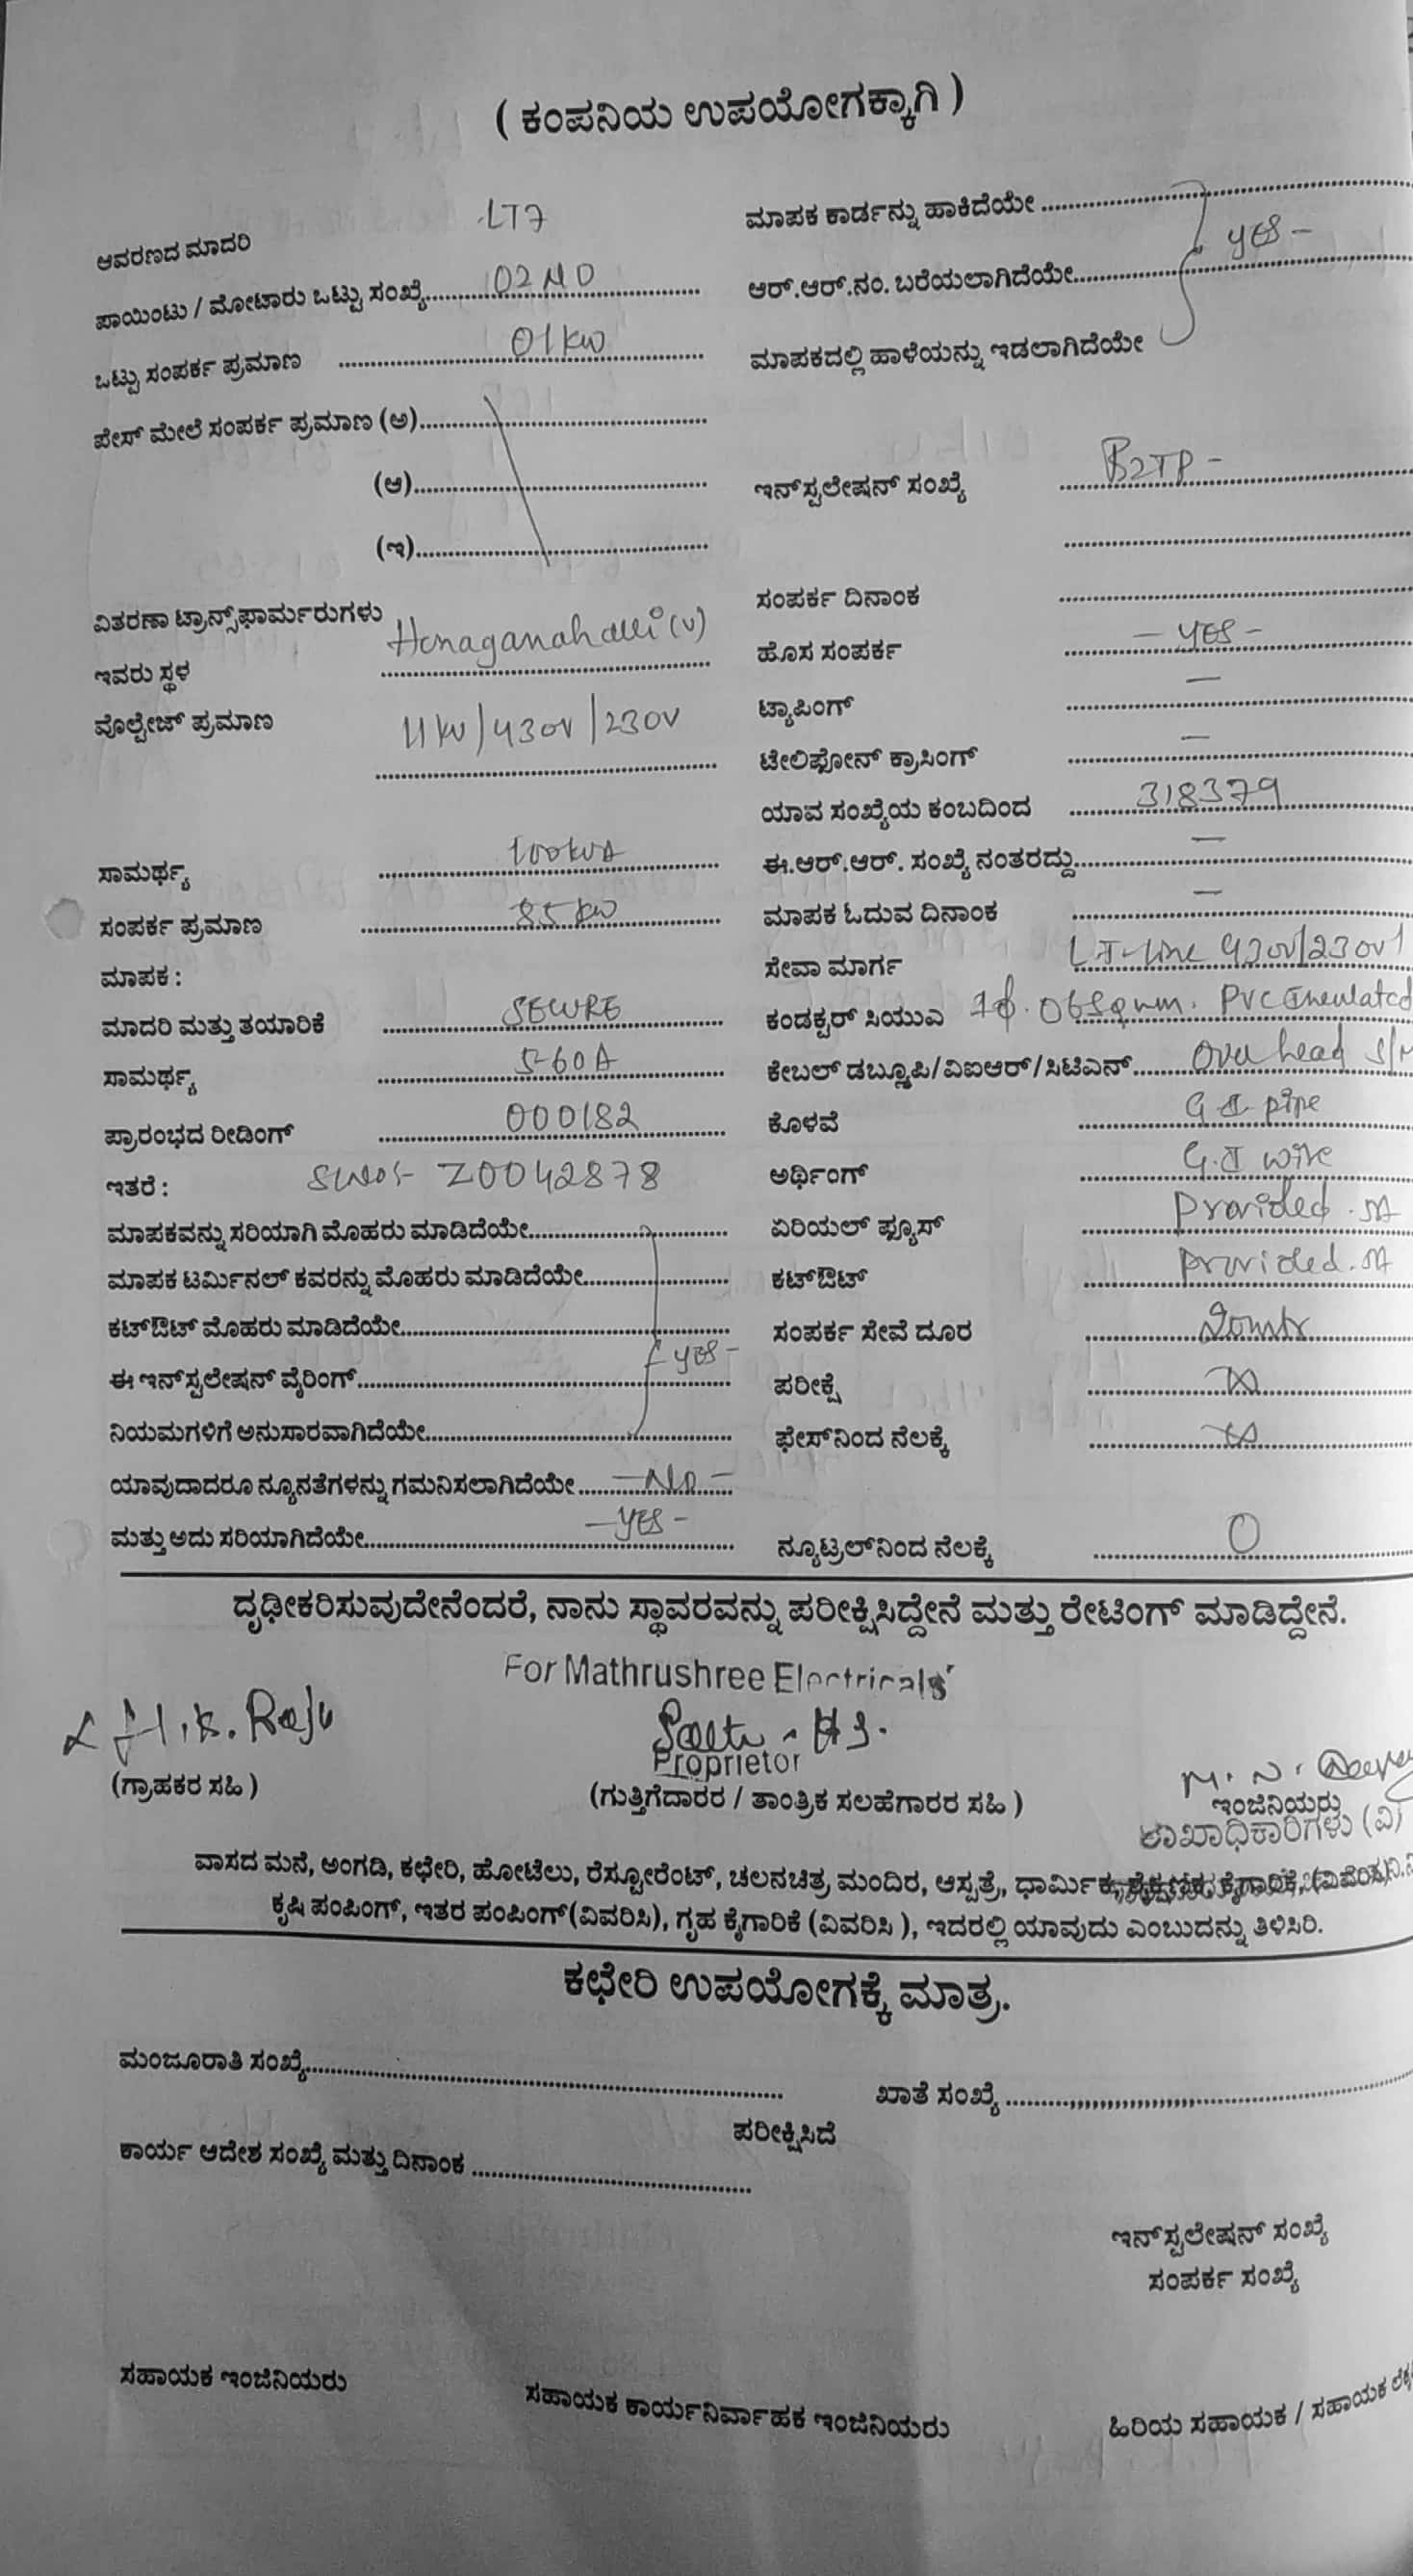 ( ಕಂಪನಿಯ ಉಪಯೋಗಕ್ಕಾಗಿ )
ಆವರಣದ ಮಾದರಿ LT7
ಪಾಯಿಂಟು / ಮೋಟಾರು ಒಟ್ಟು ಸಂಖ್ಯೆ 02 NO
ಒಟ್ಟು ಸಂಪರ್ಕ ಪ್ರಮಾಣ 01 KW
ಪೇಸ್ ಮೇಲೆ ಸಂಪರ್ಕ ಪ್ರಮಾಣ (ಅ)
(ಆ)
(ಇ)
ವಿತರಣಾ ಟ್ರಾನ್ಸ್‌ಫಾರ್ಮರುಗಳು
ಇವರು ಸ್ಥಳ Honaganahalli (V)
ವೊಲ್ಟೇಜ್ ಪ್ರಮಾಣ 11 KV / 430V / 230V
ಸಾಮರ್ಥ್ಯ 100 KVA
ಸಂಪರ್ಕ ಪ್ರಮಾಣ 85 KW
ಮಾಪಕ :
ಮಾದರಿ ಮತ್ತು ತಯಾರಿಕೆ SECURE
ಸಾಮರ್ಥ್ಯ 5-60A
ಪ್ರಾರಂಭದ ರೀಡಿಂಗ್ 000182
ಇತರೆ : Z0042878
ಮಾಪಕವನ್ನು ಸರಿಯಾಗಿ ಮೊಹರು ಮಾಡಿದೆಯೇ
ಮಾಪಕ ಟರ್ಮಿನಲ್ ಕವರನ್ನು ಮೊಹರು ಮಾಡಿದೆಯೇ
ಕಟ್‌ಔಟ್ ಮೊಹರು ಮಾಡಿದೆಯೇ
ಈ ಇನ್‌ಸ್ಟಲೇಷನ್ ವೈರಿಂಗ್ YES -
ನಿಯಮಗಳಿಗೆ ಅನುಸಾರವಾಗಿದೆಯೇ
ಯಾವುದಾದರೂ ನ್ಯೂನತೆಗಳನ್ನು ಗಮನಿಸಲಾಗಿದೆಯೇ - No -
ಮತ್ತು ಅದು ಸರಿಯಾಗಿದೆಯೇ - YES -
ಮಾಪಕ ಕಾರ್ಡನ್ನು ಹಾಕಿದೆಯೇ
ಆರ್.ಆರ್.ನಂ. ಬರೆಯಲಾಗಿದೆಯೇ YES -
ಮಾಪಕದಲ್ಲಿ ಹಾಳೆಯನ್ನು ಇಡಲಾಗಿದೆಯೇ
ಇನ್‌ಸ್ಟಲೇಷನ್ ಸಂಖ್ಯೆ B2TP -
ಸಂಪರ್ಕ ದಿನಾಂಕ
ಹೊಸ ಸಂಪರ್ಕ - YES -
ಟ್ಯಾಪಿಂಗ್ -
ಟೇಲಿಫೋನ್ ಕ್ರಾಸಿಂಗ್ -
ಯಾವ ಸಂಖ್ಯೆಯ ಕಂಬದಿಂದ 318379
ಈ.ಆರ್.ಆರ್. ಸಂಖ್ಯೆ ನಂತರದ್ದು -
ಮಾಪಕ ಓದುವ ದಿನಾಂಕ -
ಸೇವಾ ಮಾರ್ಗ LT-Line 430V/230V
ಕಂಡಕ್ಟರ್ ಸಿಯುಎ 1φ. 06 Sqmm. PVC Insulated
ಕೇಬಲ್ ಡಬ್ಲ್ಯೂಪಿ/ವಿಐಆರ್/ಸಿಟಿಎನ್ Over head
ಕೊಳವೆ G I pipe
ಅರ್ಥಿಂಗ್ G.I wire
ಏರಿಯಲ್ ಫ್ಯೂಸ್ Provided
ಕಟ್‌ಔಟ್ Provided
ಸಂಪರ್ಕ ಸೇವೆ ದೂರ 20mtr
ಪರೀಕ್ಷೆ
ಫೇಸ್‌ನಿಂದ ನೆಲಕ್ಕೆ
ನ್ಯೂಟ್ರಲ್‌ನಿಂದ ನೆಲಕ್ಕೆ 0
ದೃಢೀಕರಿಸುವುದೇನೆಂದರೆ, ನಾನು ಸ್ಥಾವರವನ್ನು ಪರೀಕ್ಷಿಸಿದ್ದೇನೆ ಮತ್ತು ರೇಟಿಂಗ್ ಮಾಡಿದ್ದೇನೆ.
For Mathrushree Electricals
H.K. Raju
Proprietor
(ಗ್ರಾಹಕರ ಸಹಿ) (ಗುತ್ತಿಗೆದಾರರ / ತಾಂತ್ರಿಕ ಸಲಹೆಗಾರರ ಸಹಿ) ಇಂಜಿನಿಯರು
ಶಾಖಾಧಿಕಾರಿಗಳು (ವಿ)
ವಾಸದ ಮನೆ, ಅಂಗಡಿ, ಕಛೇರಿ, ಹೋಟೆಲು, ರೆಸ್ಟೋರೆಂಟ್, ಚಲನಚಿತ್ರ ಮಂದಿರ, ಆಸ್ಪತ್ರೆ, ಧಾರ್ಮಿಕ, ಶೈಕ್ಷಣಿಕ, ಕೈಗಾರಿಕೆ, (ವಿವರಿಸಿ)
ಕೃಷಿ ಪಂಪಿಂಗ್, ಇತರ ಪಂಪಿಂಗ್(ವಿವರಿಸಿ), ಗೃಹ ಕೈಗಾರಿಕೆ (ವಿವರಿಸಿ ), ಇದರಲ್ಲಿ ಯಾವುದು ಎಂಬುದನ್ನು ತಿಳಿಸಿರಿ.
ಕಛೇರಿ ಉಪಯೋಗಕ್ಕೆ ಮಾತ್ರ.
ಮಂಜೂರಾತಿ ಸಂಖ್ಯೆ ಖಾತೆ ಸಂಖ್ಯೆ
ಪರೀಕ್ಷಿಸಿದೆ
ಕಾರ್ಯ ಆದೇಶ ಸಂಖ್ಯೆ ಮತ್ತು ದಿನಾಂಕ
ಇನ್‌ಸ್ಟಲೇಷನ್ ಸಂಖ್ಯೆ
ಸಂಪರ್ಕ ಸಂಖ್ಯೆ
ಸಹಾಯಕ ಇಂಜಿನಿಯರು ಸಹಾಯಕ ಕಾರ್ಯನಿರ್ವಾಹಕ ಇಂಜಿನಿಯರು ಹಿರಿಯ ಸಹಾಯಕ / ಸಹಾಯಕ